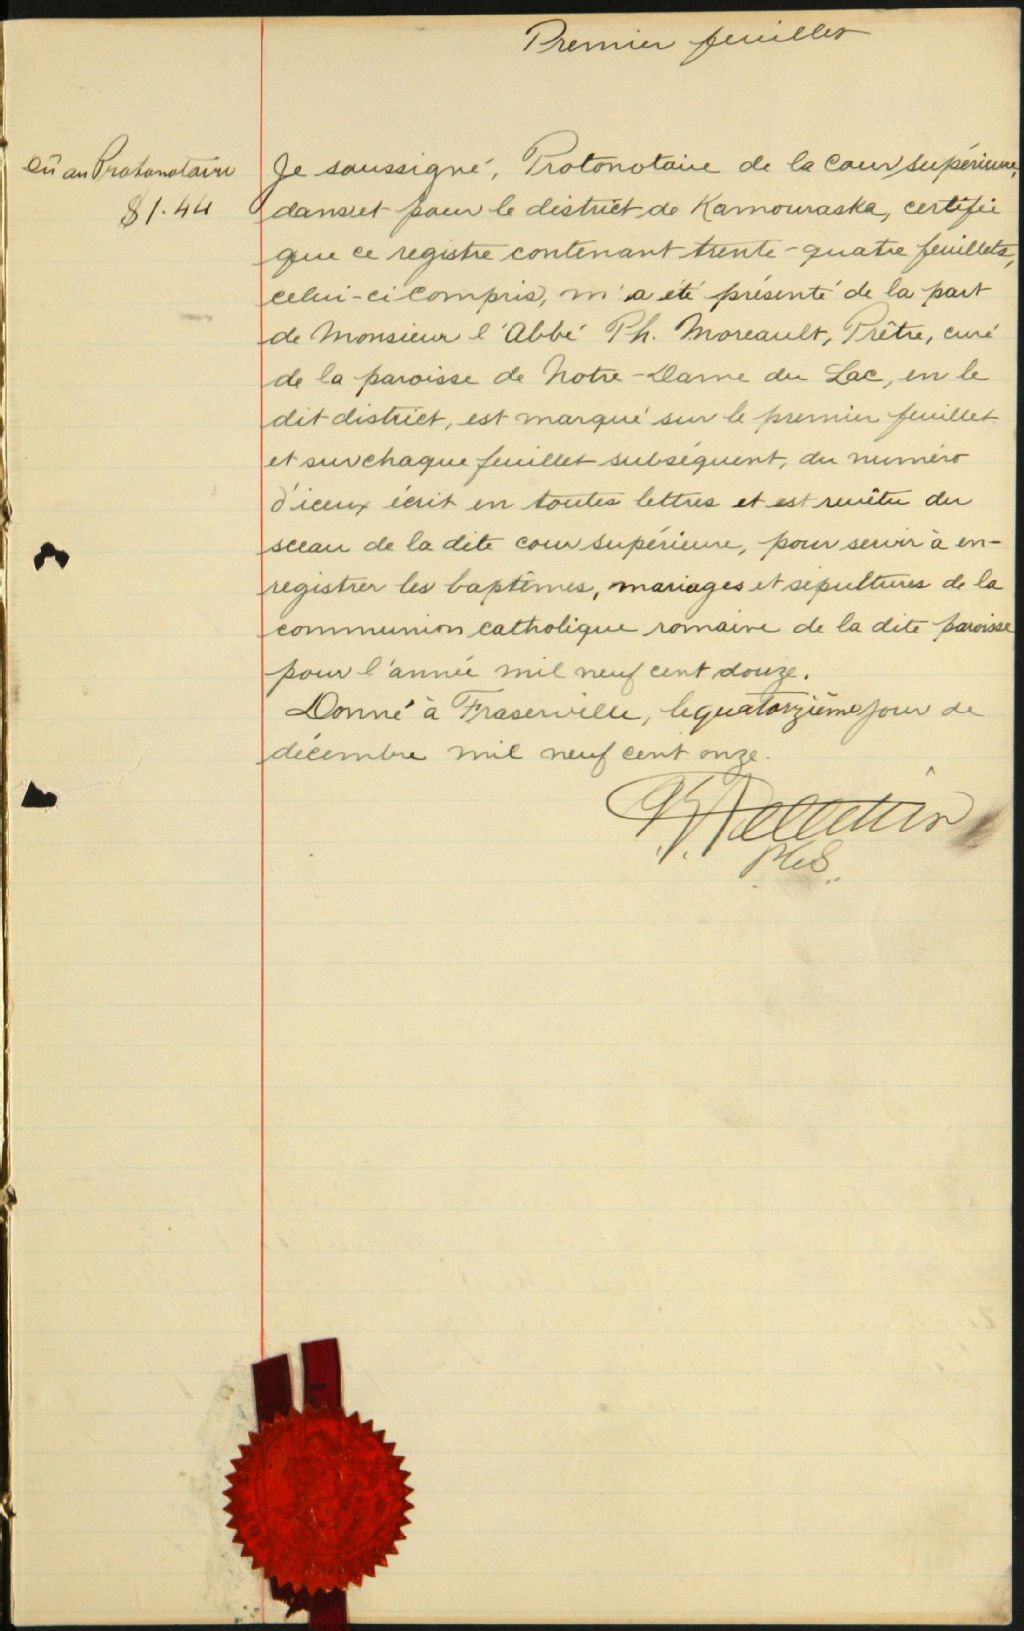 Premier feuillet
Dû au Protonotaire
$1.44
Je soussigné, Protonotaire de la Cour Supérieure,
dans et pour le district de Kamouraska, certifie
que ce registre contenant trente-quatre feuillets,
celui-ci compris, m'a été présenté de la part
de Monsieur l'Abbé Ph. Moreault, Prêtre, curé
de la paroisse de Notre-Dame du Lac, en le
dit district, est marqué sur le premier feuillet
et sur chaque feuillet subséquent, du numéro
d'iceux écrit en toutes lettres et est revêtu du
sceau de la dite cour supérieure, pour servir à en-
registrer les baptêmes, mariages et sépultures de la
communion catholique romaine de la dite paroisse
pour l'année mil neuf cent douze.
Donné à Fraserville, le quatorzième jour de
décembre mil neuf cent onze.
Pelletier
P.C.S.